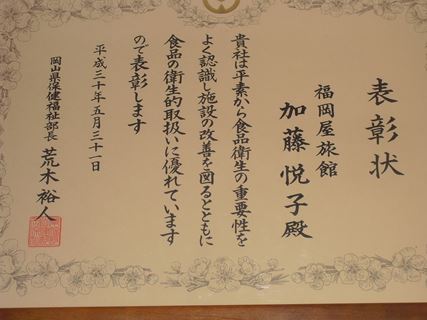 表彰状
福岡屋旅館
加藤悦子殿
貴社は平素から食品衛生の重要性を
よく認識し施設の改善を図るとともに
食品の衛生的取扱いに優れています
ので表彰します
平成三十年五月三十一日
岡山県保健福祉部長 荒木裕人